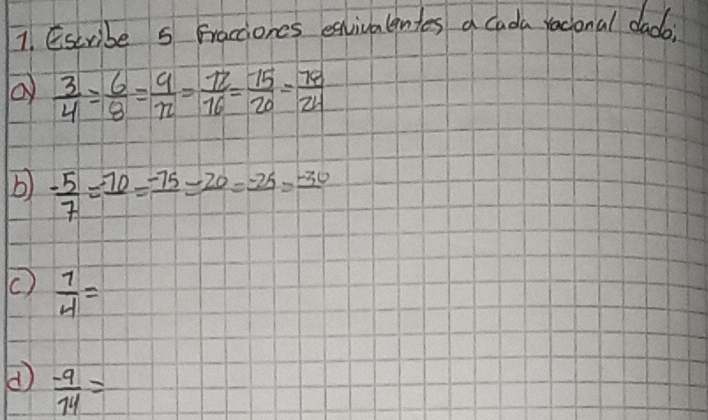 1. Escribe 5 fracciones equivalentes a cada racional dado:
a) 3/4 = 6/8 = 9/12 = 12/16 = 15/20 = 18/24
b) -5/7 = -10 = -15 = -20 = -25 = -30
c) 1/4 =
d) -9/14 =